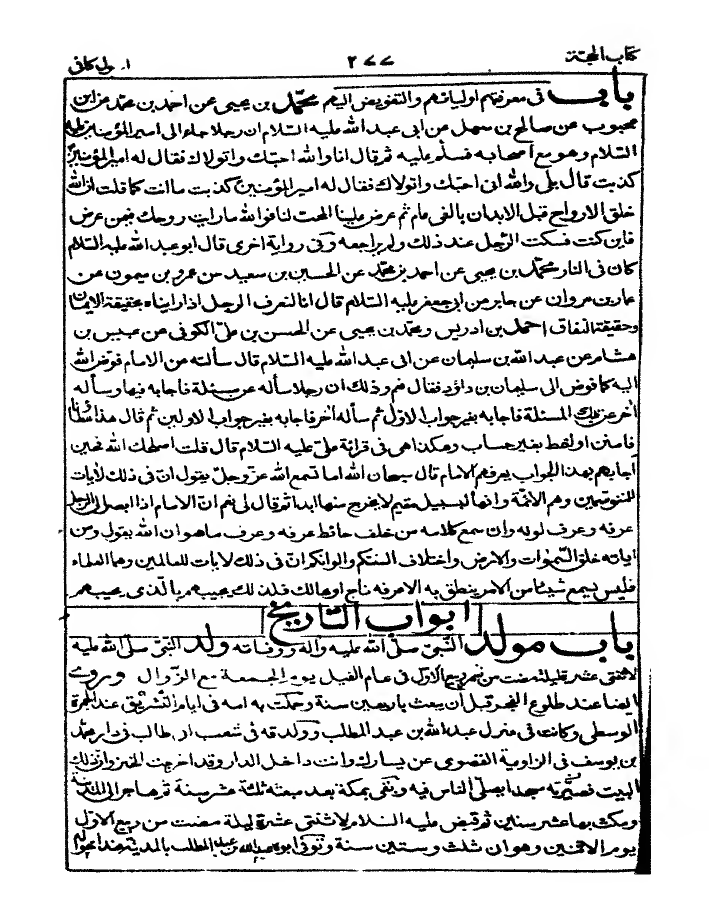 كتاب الحجة ٢٧٧ اصول كافى
باب فى معرفتهم اوليائهم والتفويض اليهم محمد بن يحيى عن احمد بن محمد عن ابن
محبوب عن صالح بن سهل عن ابى عبد الله عليه السلام ان رجلا جاء الى امير المؤمنين عليه
السلام وهو مع اصحابه فسلم عليه ثم قال انا والله احبك واتولاك فقال له امير المؤمنين
كذبت قال بلى والله انى احبك واتولاك فقال له امير المؤمنين كذبت ما انت كما قلت ان الله
خلق الارواح قبل الابدان بالفى عام ثم عرض علينا المحب لنا فوالله ما رايت روحك فيمن عرض
فاين كنت فسكت الرجل عند ذلك ولم يراجعه وفى رواية اخرى قال ابو عبد الله عليه السلام
كان فى النار محمد بن يحيى عن احمد بن محمد عن الحسين بن سعيد عن عمرو بن ميمون عن
عمار بن مروان عن جابر عن ابى جعفر عليه السلام قال انا لنعرف الرجل اذا رايناه بحقيقة الايمان
وحقيقة النفاق احمد بن ادريس ومحمد بن يحيى عن الحسن بن على الكوفى عن عبيس بن
هشام عن عبد الله بن سليمان عن ابى عبد الله عليه السلام قال سألته عن الامام فوض الله
اليه كما فوض الى سليمان بن داؤد فقال نعم وذلك ان رجلا سأله عن مسئلة فاجابه فيها وسأله
آخر عن تلك المسئلة فاجابه بغير جواب الاول ثم سأله آخر فاجابه بغير جواب الاولين ثم قال هذا عطاؤنا
فامنن او اعط بغير حساب وهكذا هى فى قرائة على عليه السلام قال قلت اصلحك الله فحين
اجابهم بهذا الجواب يعرفهم الامام قال سبحان الله اما تسمع الله عز وجل يقول ان فى ذلك لايات
للمتوسمين وهم الائمة وانها لبسبيل مقيم لا يخرج منها ابدا ثم قال لى نعم ان الامام اذا ابصر الى الرجل
عرفه وعرف لونه وان سمع كلامه من خلف حائط عرفه وعرف ما هو ان الله يقول ومن
اياته خلق السموات والارض واختلاف السنتكم والوانكم ان فى ذلك لايات للعالمين وهم العلماء
فليس يسمع شيئا من الامر ينطق به الا عرفه ناج او هالك فلذلك يجيبهم بالذى يجيبهم
ابواب التاريخ
باب مولد النبى صلى الله عليه وآله ووفاته ولد النبى صلى الله عليه
لاثنتى عشرة ليلة مضت من شهر ربيع الاول فى عام الفيل يوم الجمعة مع الزوال وروى
ايضا عند طلوع الفجر قبل ان يبعث باربعين سنة وحملت به امه فى ايام التشريق عند الجمرة
الوسطى وكانت فى منزل عبد الله بن عبد المطلب وولدته فى شعب ابى طالب فى دار محمد
بن يوسف فى الزاوية القصوى عن يسارك وانت داخل الدار وقد اخرجت الخيزران ذلك
البيت فصيرته مسجدا يصلى الناس فيه وبقى بمكة بعد مبعثه ثلثة عشر سنة ثم هاجر الى المدينة
ومكث بها عشر سنين ثم قبض عليه السلام لاثنتى عشرة ليلة مضت من ربيع الاول
يوم الاثنين وهو ابن ثلث وستين سنة وتوفى ابوه عبد الله بن عبد المطلب بالمدينة عند اخواله